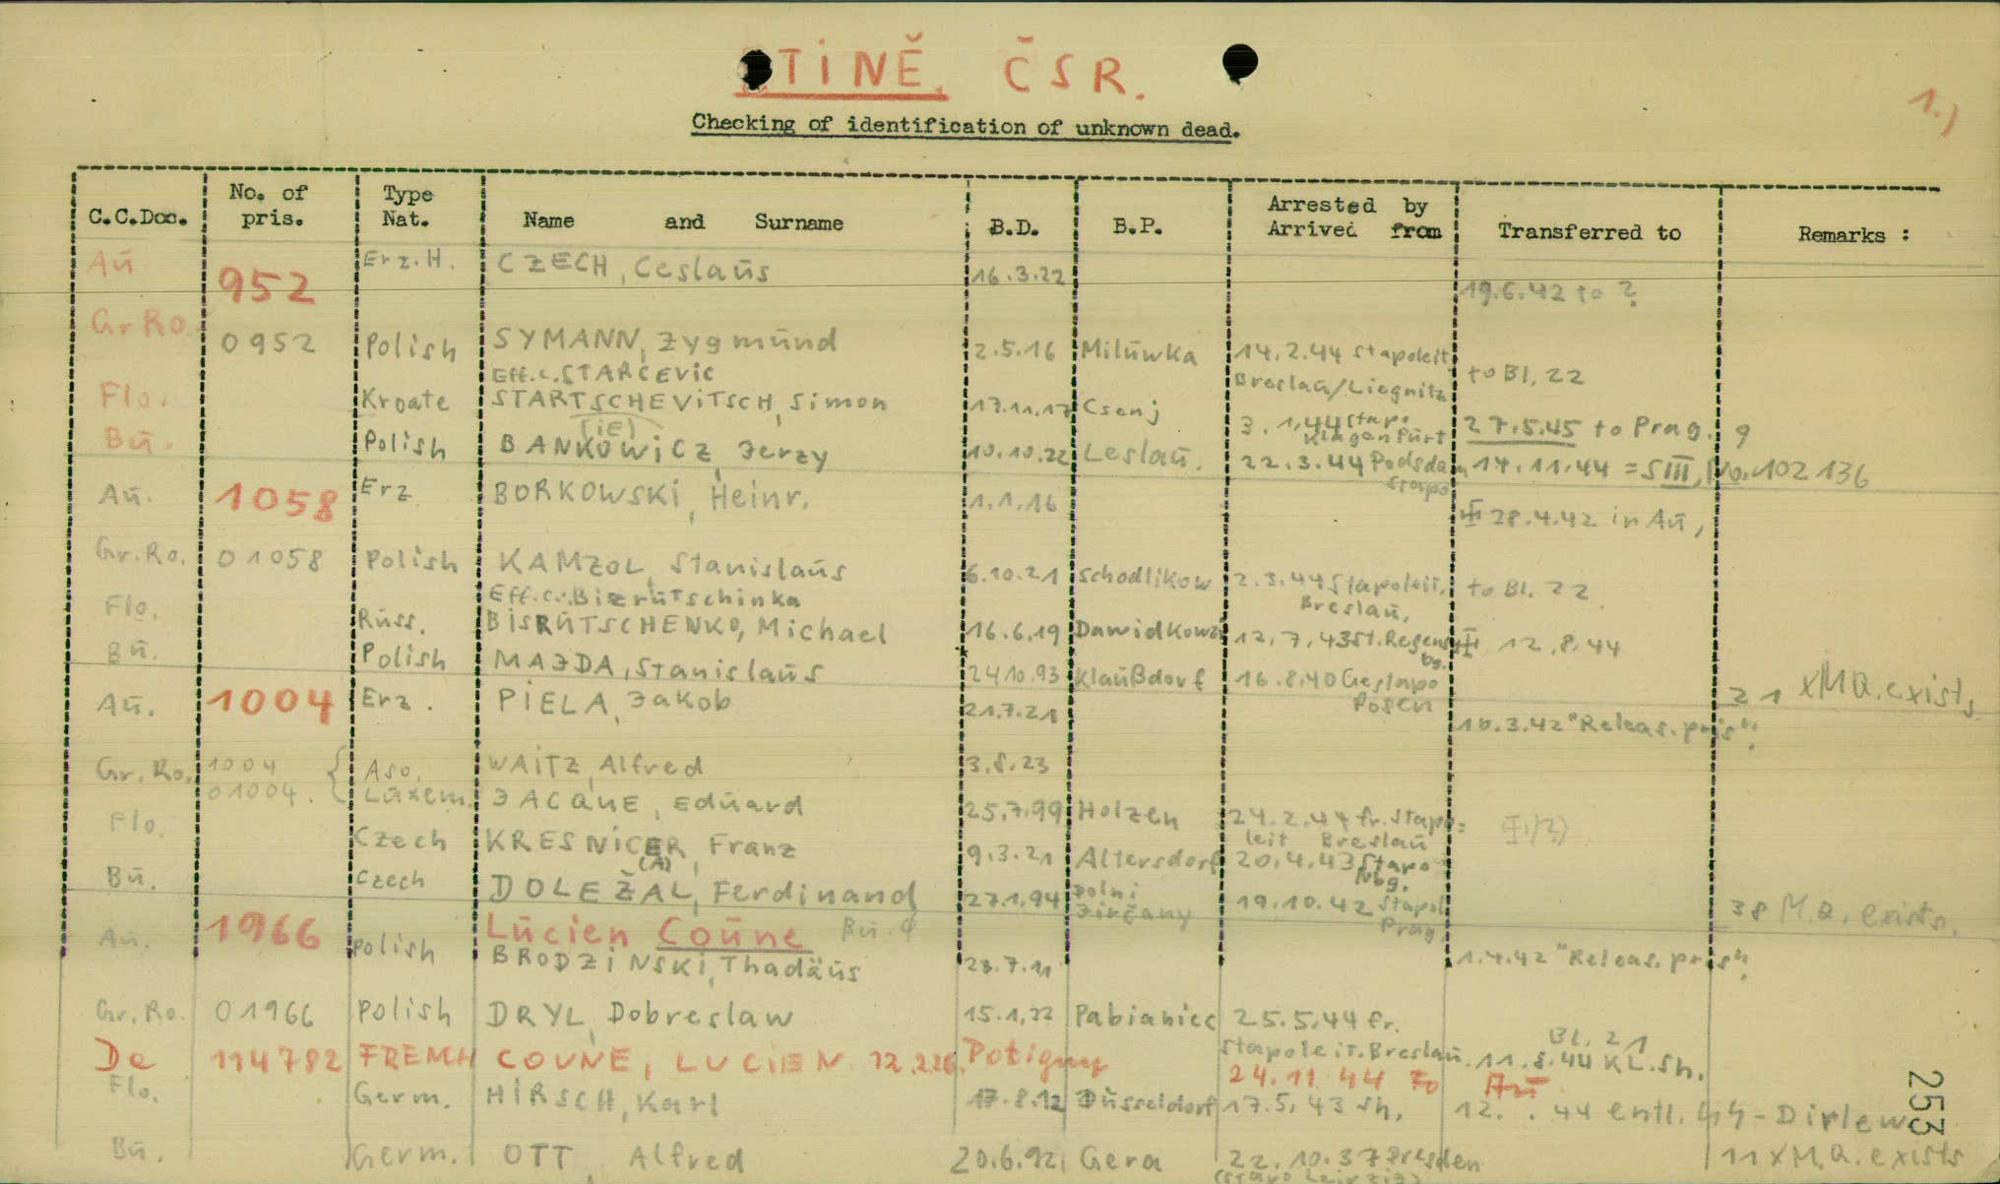 ŠTINĚ, ČSR.
1.)
Checking of identification of unknown dead.
C.C.Doc. No. of pris. Type Nat. Name and Surname B.D. B.P. Arrested by Arrived from Transferred to Remarks :
Aū 952 Erz.H. CZECH, Ceslaūs 16.3.22 19.6.42 to ?
Gr Ro. 0952 Polish SYMANN, Zygmūnd 2.5.16 Milūwka 14.2.44 Stapoleit Breslaū/Liegnitz to Bl. 22
Eff.c. STARČEVIC
Flo. Kroate STARTSCHEVITSCH, Simon 17.11.17 Csenj 3.1.44 Stapo Klagenfūrt 27.5.45 to Prag. 9
(iE)
Bū. Polish BANKOWiCZ, Jerzy 10.10.22 Leslaū. 22.3.44 Podsdam Stapo 14.11.44 = S III, No. 102 136
Aū. 1058 Erz BORKOWSKi, Heinr. 1.1.16 28.4.42 in Aū,
Gr.Ro. 01058 Polish KAMZOL, Stanislaūs 6.10.21 Schodlikow 2.3.44 Stapoleit. Breslaū. to Bl. 22
Eff.c. BizrūTschinka
Flo. Rūss. BiSRūTSCHENKO, Michael 16.6.19 Dawidkowzi 12.7.43 St. Regensbg. 12.8.44
Bū. Polish MAJDA, Stanislaūs 24.10.93 Klaūßdorf 16.8.40 Gestapo Posen 21 xM.Q. exists
Aū. 1004 Erz. PiELA, Jakob 21.7.21 10.3.42 "Releas. pris".
Gr. Ro. 1004 Aso. WAiTZ, Alfred 3.8.23
01004. Lūxem. JACQUE, Edūard 25.7.99 Holzen 24.2.44 fr. Stapo= leit Breslaū
Flo. Czech KRESNiCER, Franz 9.3.21 Altersdorf 20.4.43 Stapo Nbg.
(A)
Bū. Czech DOLEŽAL, Ferdinand 27.1.94 Dolni Jirčany 19.10.42 Stapol Prag. 38 M.Q. exists.
1966 Lūcien Coūne Bū.
Aū. Polish BRODZiNSKi, Thadäūs 23.7.11 1.4.42 "Releas. pris".
Gr. Ro. 01966 Polish DRYL, Dobreslaw 15.1.22 Pabianiec 25.5.44 fr. Stapoleit. Breslaū. Bl. 21 11.8.44 KL. Sh.
De 114782 FRENCH COUNE, LUCIEN. 12.2.26. Potigny 24.11.44 Fo Aū
Flo. Germ. HiRSCH, Karl 17.8.12 Düsseldorf 17.5.43 Sh. 12. . 44 entl. SS-Dirlew
Bū. Germ. OTT, Alfred 20.6.92 Gera 22.10.37 Dresden (Stapo Leipzig) 11 xM.Q. exists
253